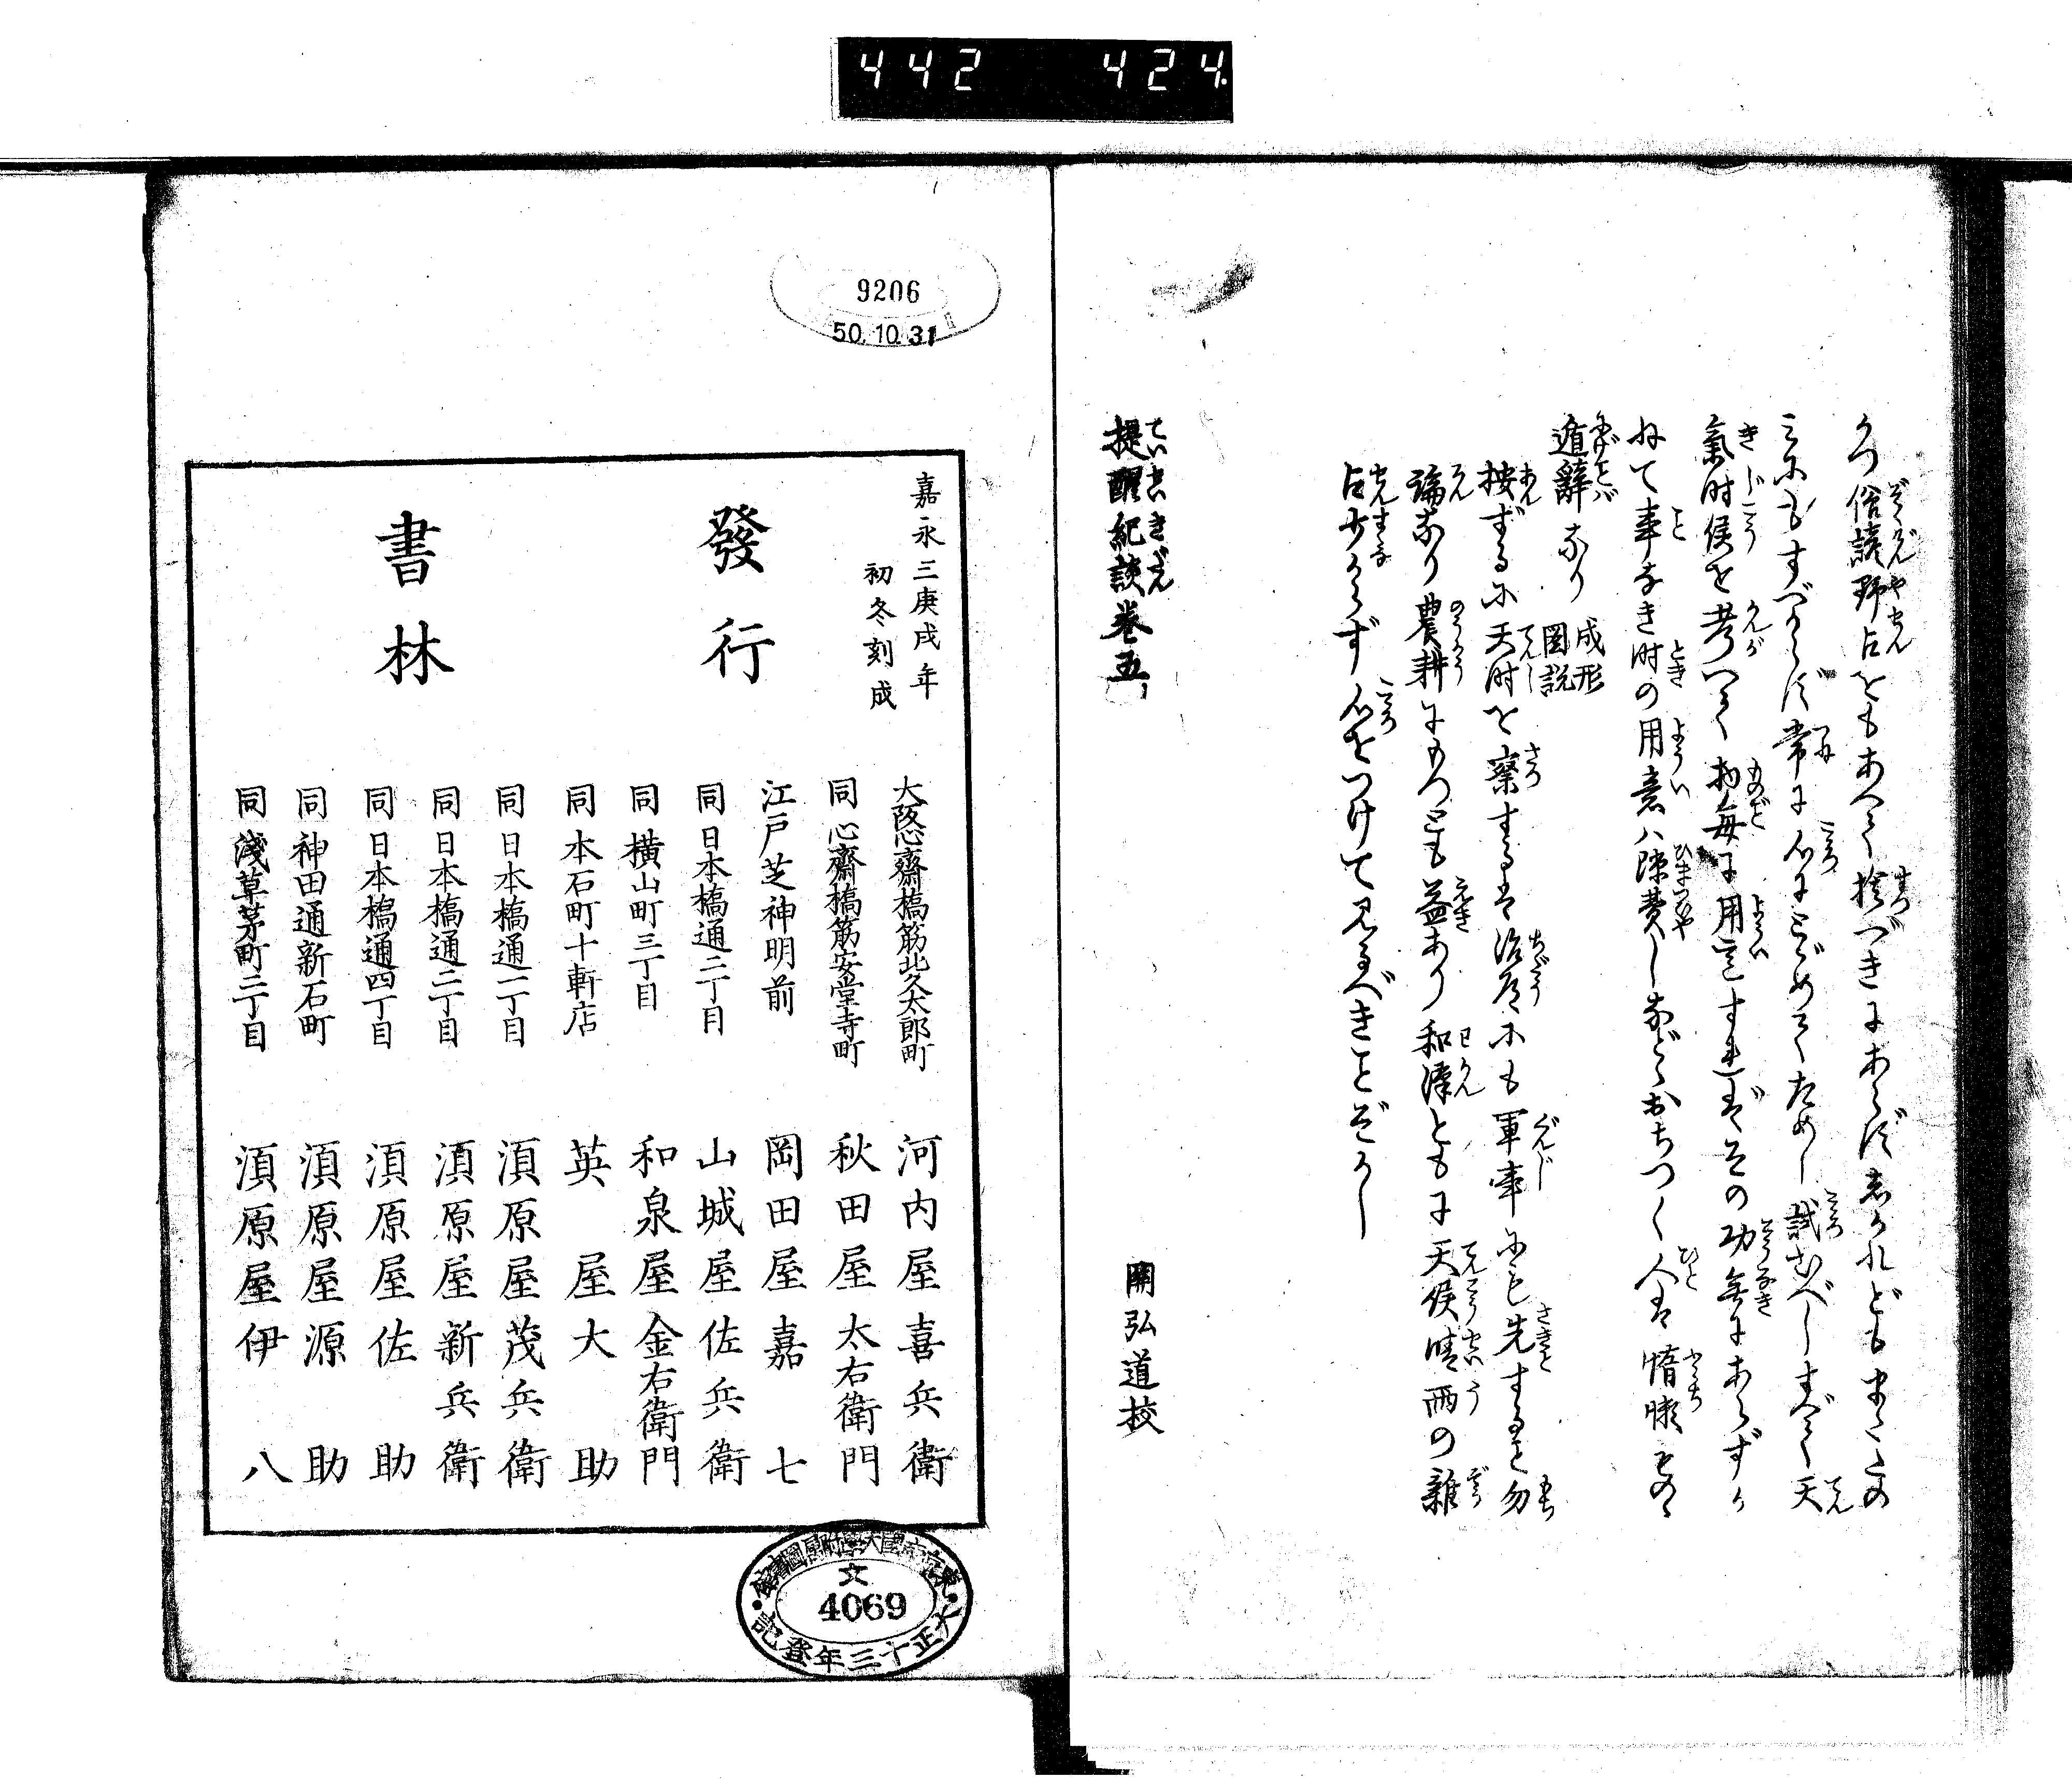 442 424
かつ俗諺野占をもあへて捨べきにあらず志かれどもまたその
みにもすべからず常に心にとゞめてためし試むべしすべて天
氣時候を考へて物毎に用意すればその功無にあらずか
ねて事なき時の用意ハ隙費しなどゝおちつく人は惰嬾ものゝ
遁辭なり 成形
圖説
按ずるに天時を察するは治道にも軍事にも先するを勿
論なり農耕にもつとも益あり和漢ともに天候晴雨の雜
占少からず心をつけて見るべきことぞかし
提醒紀談巻五
關弘道校
9206
50.10.31
嘉永三庚戌年
初冬刻成
發行
書林
大阪心齋橋筋北久太郎町 河内屋喜兵衛
同心齋橋筋安堂寺町 秋田屋太右衛門
江戸芝神明前 岡田屋嘉七
同日本橋通二丁目 山城屋佐兵衛
同横山町三丁目 和泉屋金右衛門
同本石町十軒店 英屋大助
同日本橋通一丁目 須原屋茂兵衛
同日本橋通二丁目 須原屋新兵衛
同日本橋通四丁目 須原屋佐助
同神田通新石町 須原屋源助
同淺草茅町二丁目 須原屋伊八
東京帝國大學附屬圖書館
文
4069
大正十三年登記